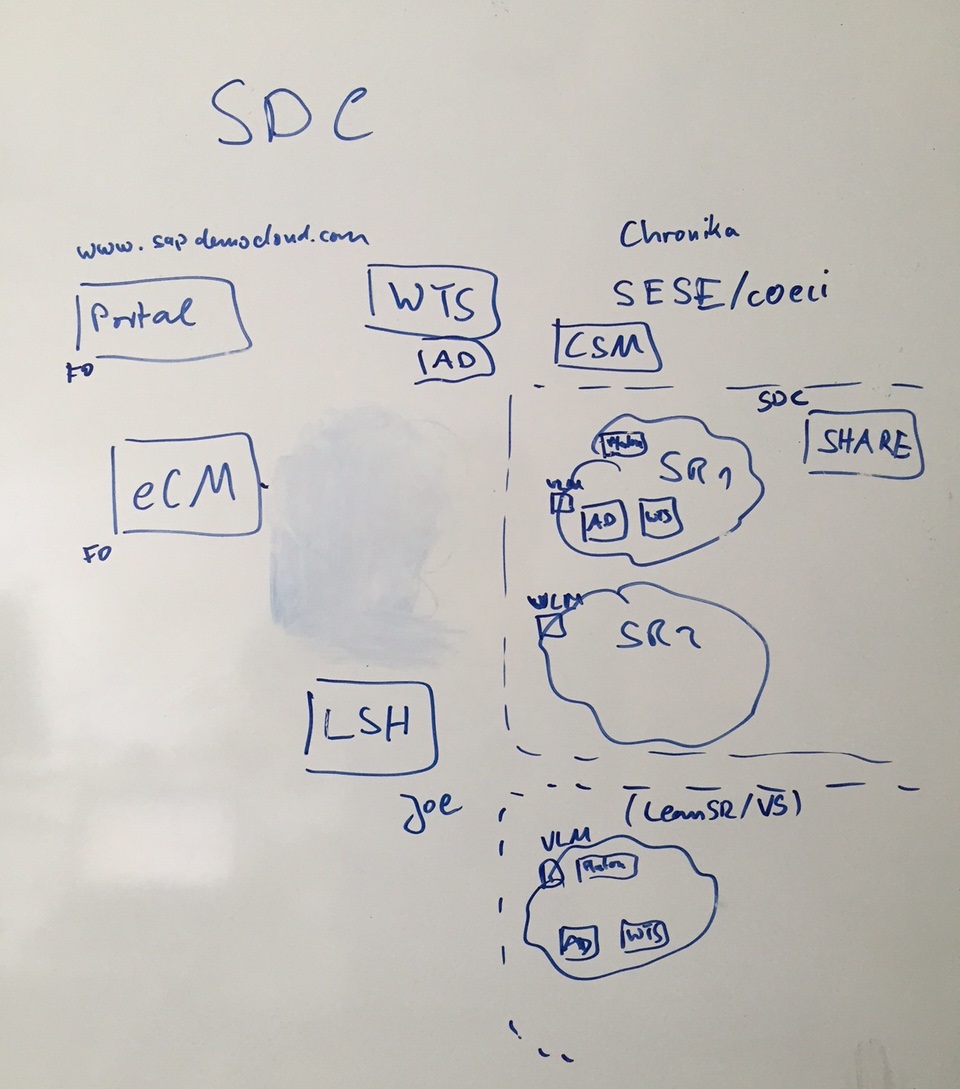 SDC
www.sapdemocloud.com
Portal
FO
WTS
AD
eCM
FO
LSH
Joe
Chronika
SESE/coeci
CSM
SDC
SHARE
SR1
VLM
AD
WTS
VLM
SR2
(LeanSR/VS)
VLM
AD
WTS